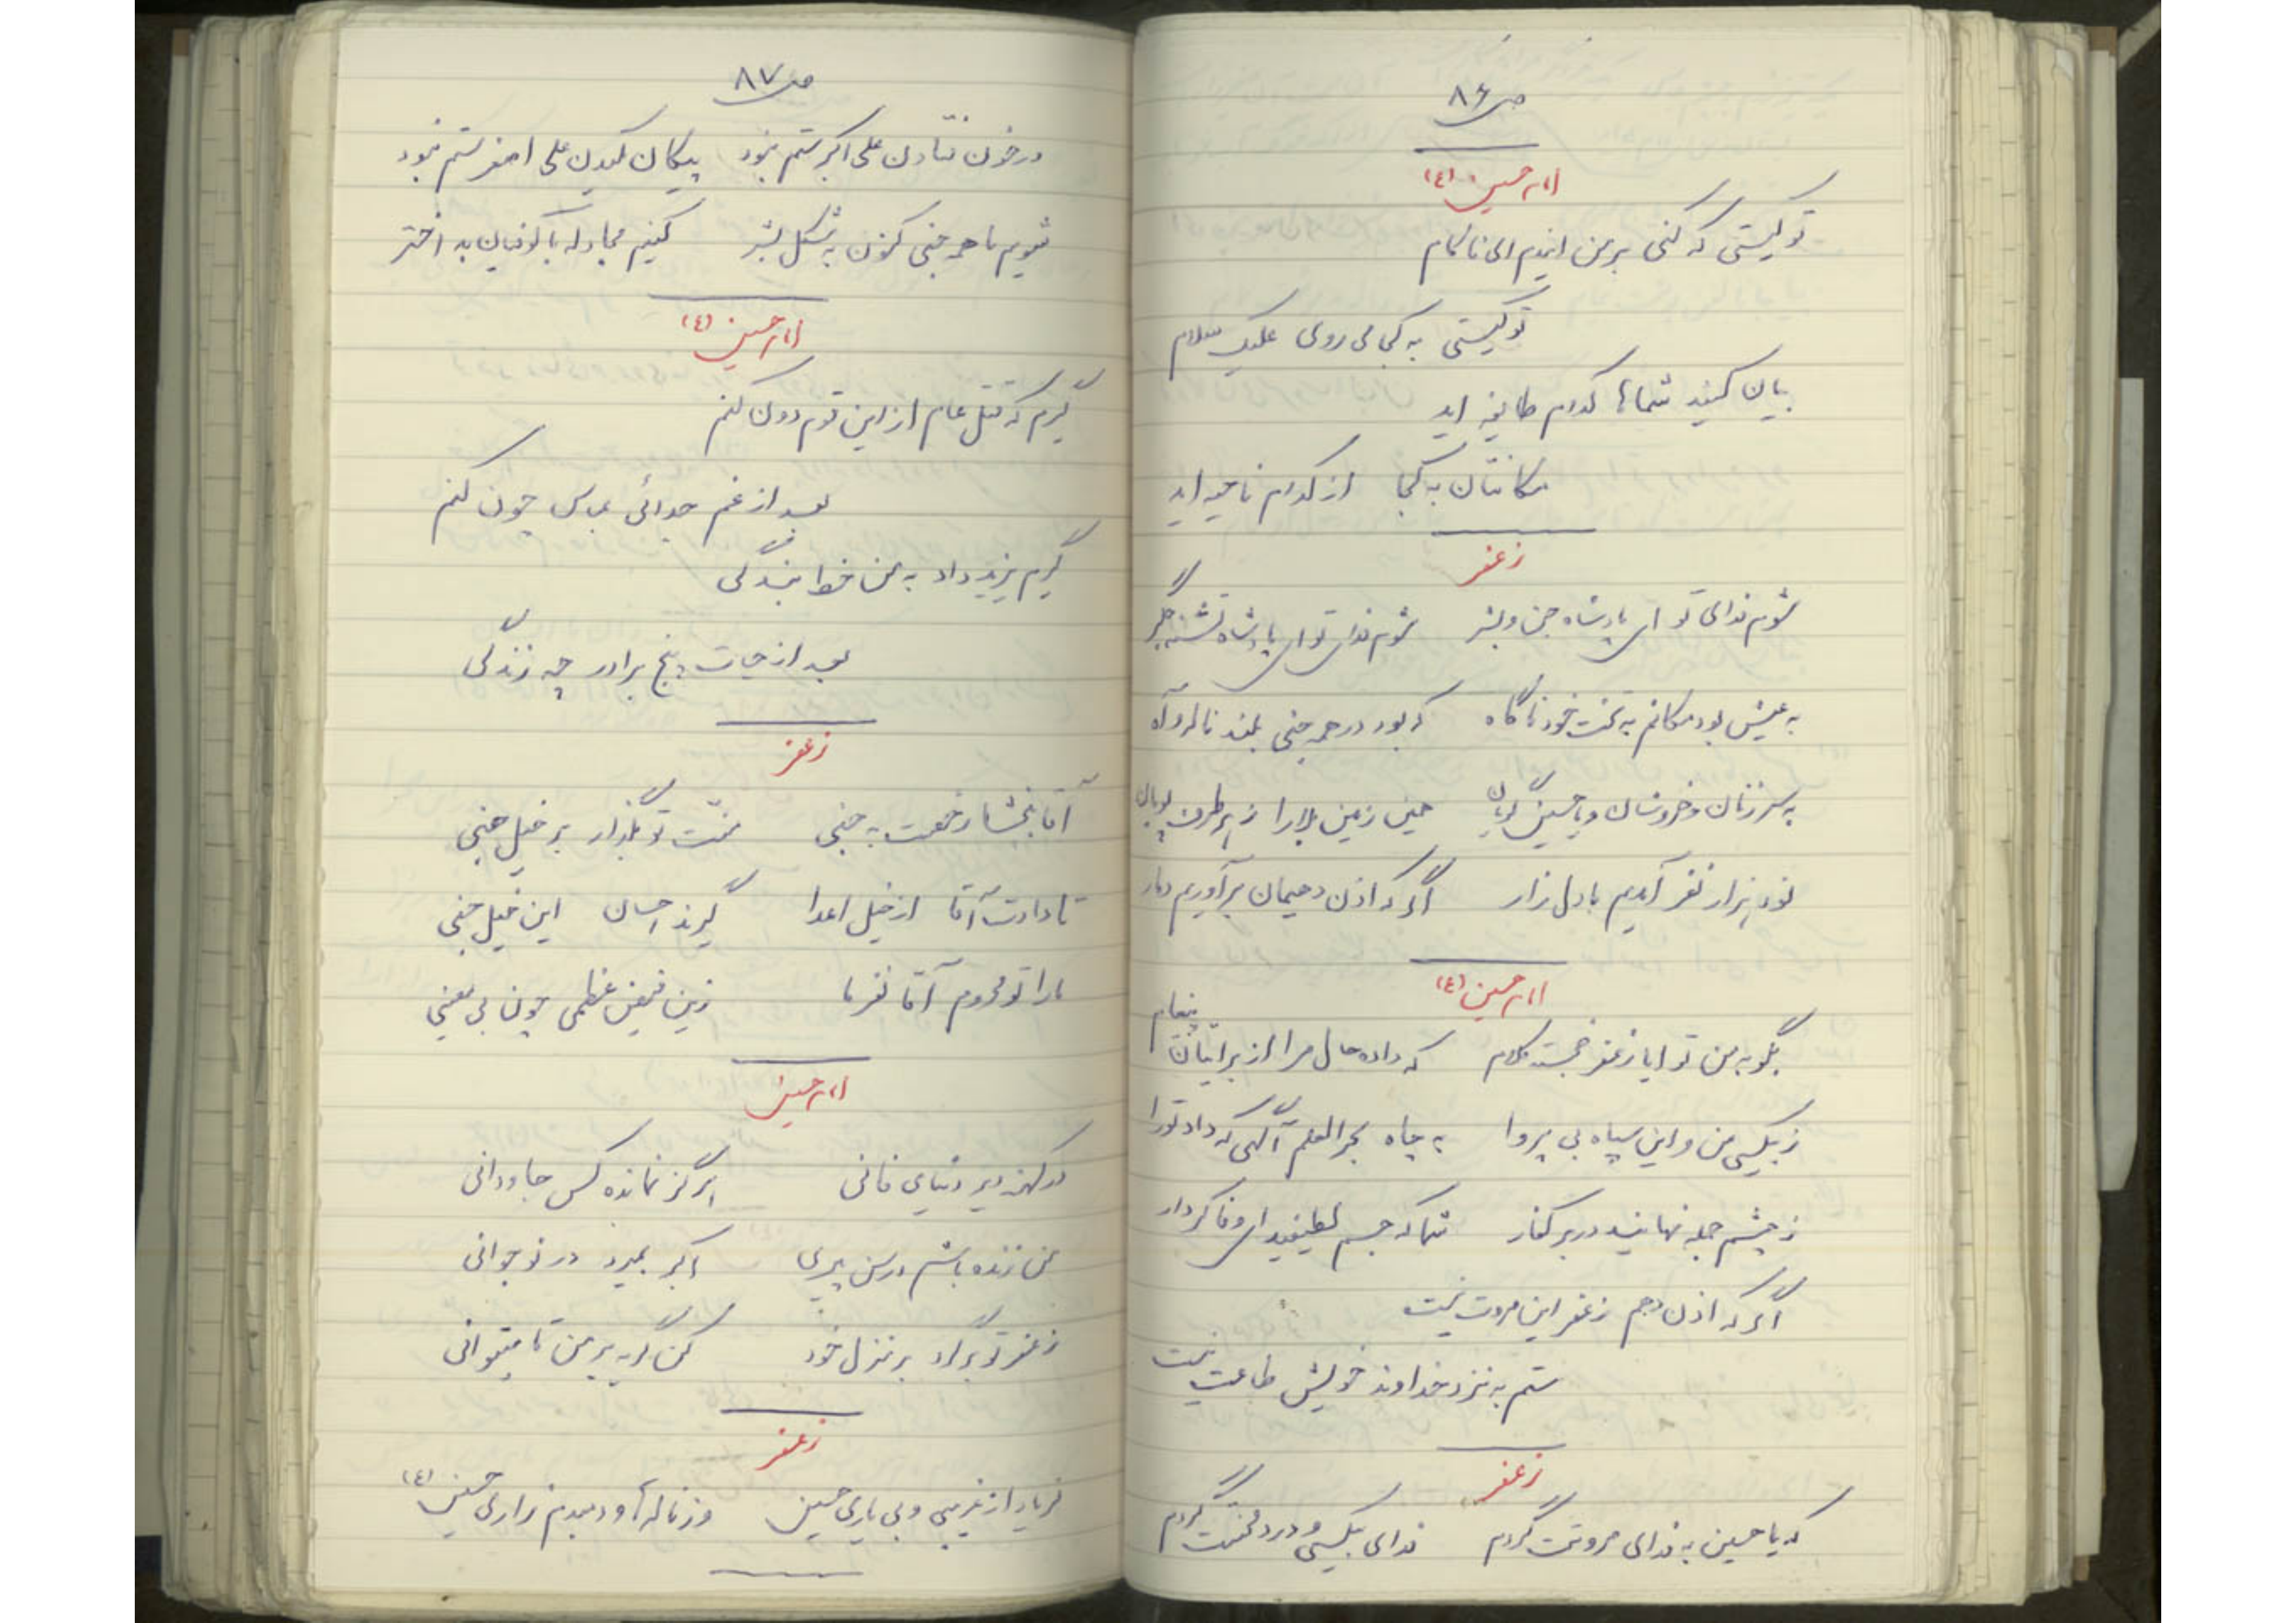 ص ۸۶
امام حسین (ع)
تو کیستی که کنی بر من این دم الی ناکام
تو کیستی به کجا می روی علیک سلام
بیان کنید شماها کدام طایفه اید
مکانتان به کجا از کدام ناحیه اید
زعفر
شوم فدای تو ای پادشاه جن و بشر شوم فدای تو ای پادشاه تشنه جگر
به عیش بود مکانم به تخت خود ناگاه که بود در همه جنی بلند ناله و آه
به سر زنان و خروشان و یا حسین گویان همین زمین بلا را ز هر طرف پویان
نود هزار نفر آمدیم با دل زار اگر که اذن دهیمان برآوریم دمار
امام حسین (ع)
بگو به من تو ایا زعفر خجسته کلام که داده حال مرا از برایتان پیغام
ز بیکسی من و این سپاه بی پروا به چاه بحر العلم آگهی که داد تو را
ز چشم جمله نهانید در بر کفار شما که جسم لطیفید ای وفا کردار
اگر که اذن دهم زعفر این مروت نیست
ستم به نزد خداوند خویش طاعت نیست
زعفر
که یا حسین به فدای مروتت گردم فدای بیکسی و درد و محنتت گردم
ص ۸۷
در خون فتادن علی اکبر ستم نبود پیکان مکیدن علی اصغر ستم نبود
شویم ما همه جنی کنون به شکل بشر کنیم مجادله با کوفیان بد اختر
امام حسین (ع)
گیرم که قتل عام از این قوم دون کنم
بعد از غم جدائی عباس چون کنم
گیرم یزید داد به من خط بندگی
بعد از حیات پنج برادر چه زندگی
زعفر
آقا ببخشا رخصت به جنی منّت تو بگذار بر خیل جنی
تا دادت آقا از خیل اعدا گیرند احسان این خیل جنی
ما را تو محروم آقا نفرما زین فیض عظمی چون بی معینی
امام حسین
در کهنه دیر دنیای فانی هرگز نمانده کس جاودانی
من زنده باشم در سن پیری اکبر بمیرد در نوجوانی
زعفر تو برگرد بر منزل خود کن گریه بر من تا میتوانی
زعفر
فریاد از غریبی و بی یاری حسین وز ناله ها و دمبدم زاری حسین (ع)